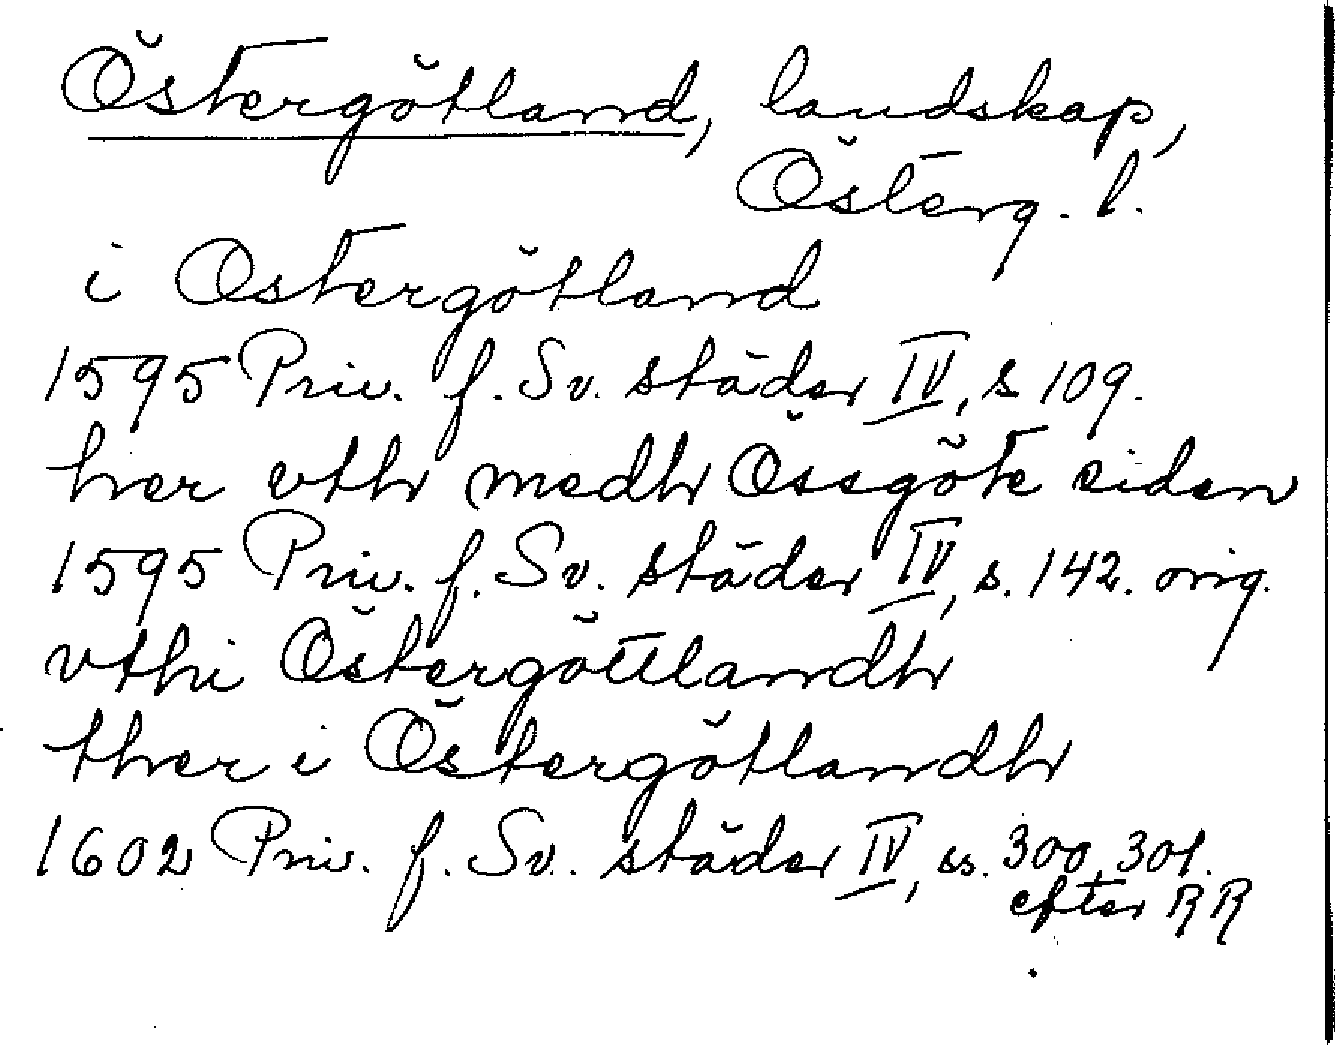 Östergötland, landskap,
Österg. l.
i Östergötland
1595 Priv. f. Sv. städer IV, s 109.
her vthr medhr Össgöte siden
1595 Priv. f. Sv. städer IV, s. 142. orig.
vthi Östergöttlandh
ther i Östergötlandh
1602 Priv. f. Sv. städer IV, ss. 300, 301.
efter RR